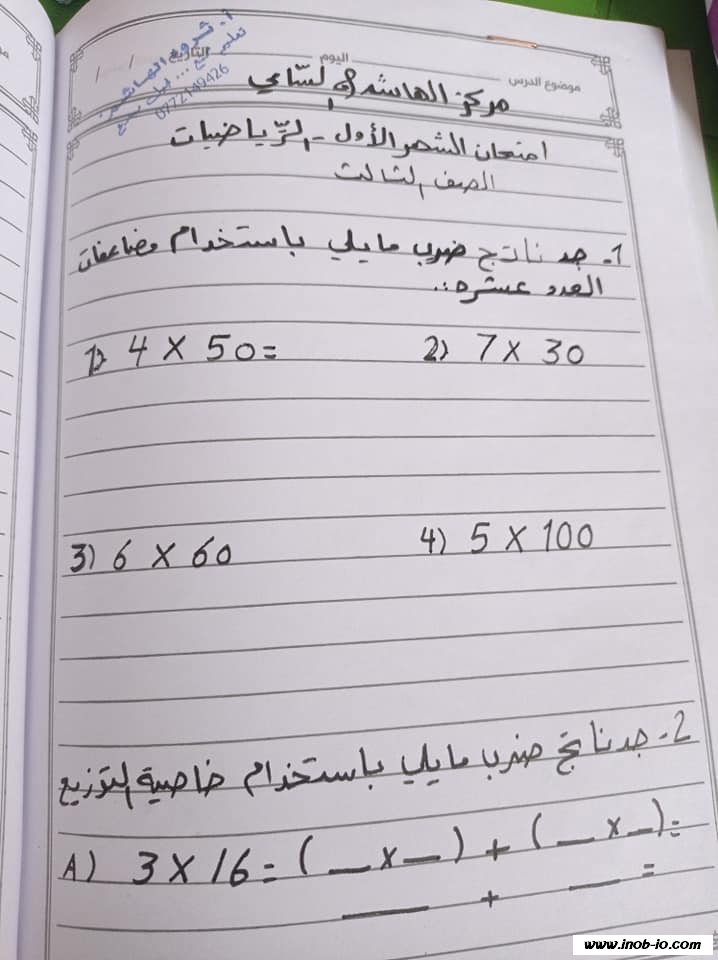 موضوع الدرس
اليوم
التاريخ / /
0772149426
مركز الهاشمي لساعي
امتحان الشهر الأول - الرياضيات
الصف الثالث
1- جد ناتج ضرب مايلي باستخدام مضاعفات
العدد عشره :.
1) 4 X 50 =
2) 7 X 30
3) 6 X 60
4) 5 X 100
2- جد ناتج ضرب مايلي باستخدام خاصية التوزيع
A) 3 X 16 = ( __ x __ ) + ( __ x __ ) =
____ + ____ =
www.inob-io.com